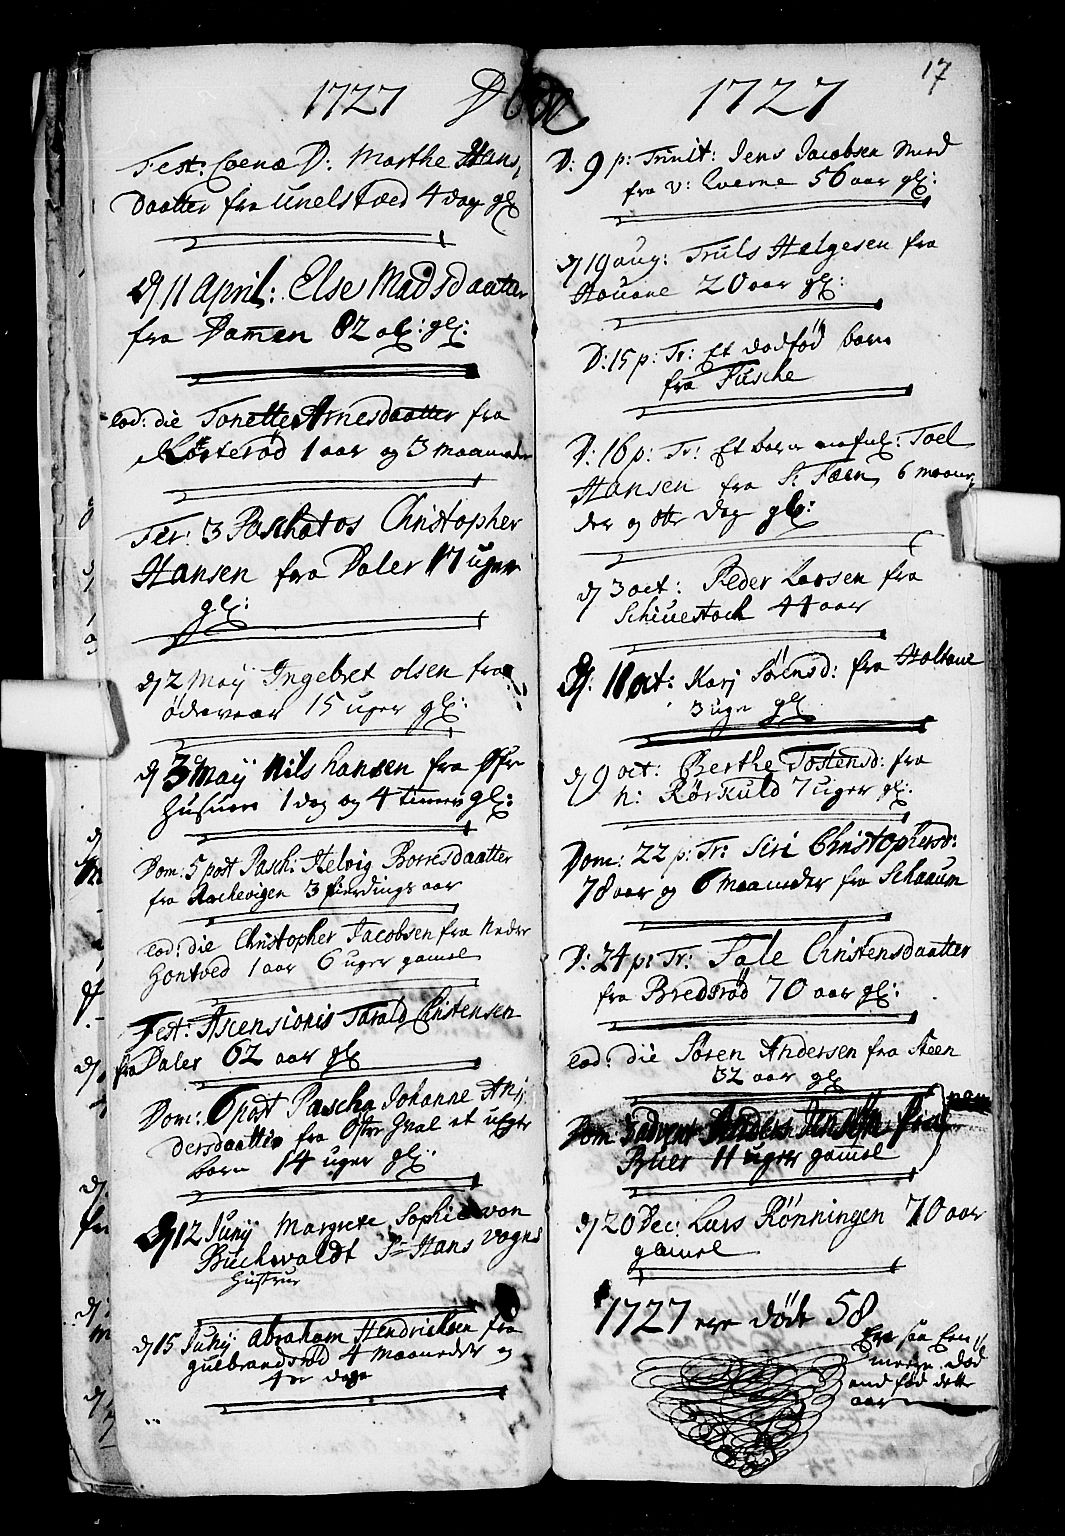 1727 Döde
Fest: Coenæ D: Marthe Hans,
Daatter fra Unelstved 4 dage gl
dj 11 April: Else Madsdaatter
fra Damen 82 gl:
eod: die Tonette Arnesdaatter fra
Korterød 1 aar og 3 maaneder
Fer: 3 Paschatos Christopher
Hansen fra Daler 17 uger
gl:
dj 2 Maij Ingebret olsen fra
ödevaar 15 uger gl:
dj 3 Maij Nils hansen fra
Husuen 1 dag og 4 timer gl:
Dom: 5 post Pasch: Helvig Borresdaatter
fra Rachevigen 3 fierdings aar
eod: die Christopher Jacobsen fra Neder
Hontved 1 aar 6 uger gamel
Fest: Ascensionis Tarald Christensen
fra Daler 62 aar gl
Dom: 6 post Pascha Johanne An
dersdaatter fra Öftre Hval et uegte
barn 14 uger gl:
dj 12 Junij Margrete Sophie von
Buchwaldt Sr Hans Vogns
Hustrue
dj 15 Junij Abraham Hendrichsen fra
gulbrandsröd 4 maaneder og
dage
1727
17
D: 9 p: Trinit: Jens Jacobsen
fra v: Qverne 56 aar gl:
dj 19 aug: Truls Helgesen fra
Houane 20 aar gl:
D: 15 p: Tr: Et dødfød barn
fra Fusche
D: 16 p: Tr: Et barn nafnl: Joel
Hansen fra 6 maane
der og otte dag gl:
dj 3 oct: Peder Larsen fra
Schiuestoch 44 aar
dj: 11 oct: Karj Sörensd: fra Holtane
3 uge gl
dj 9 oct: Berthe Tostensd: fra
n: Rörkuld 7 uger gl:
Dom: 22 p: Tr: Siri Christophersd:
78 aar og 6 maaneder fra Schaaum
D: 24 p: Tr: Sale Christensdaatter
fra Bredsröd 70 aar gl:
eod: die Sören Andersen fra Steen
32 aar gl
Dom 3 advent Anders Jensön fra
Buer 11 uger gamel
dj 20 Dec: Lars Rönningen 70 aar
gamel
1727 ere dödt 58
Ere saa Een
mere död
end föd dette
aar